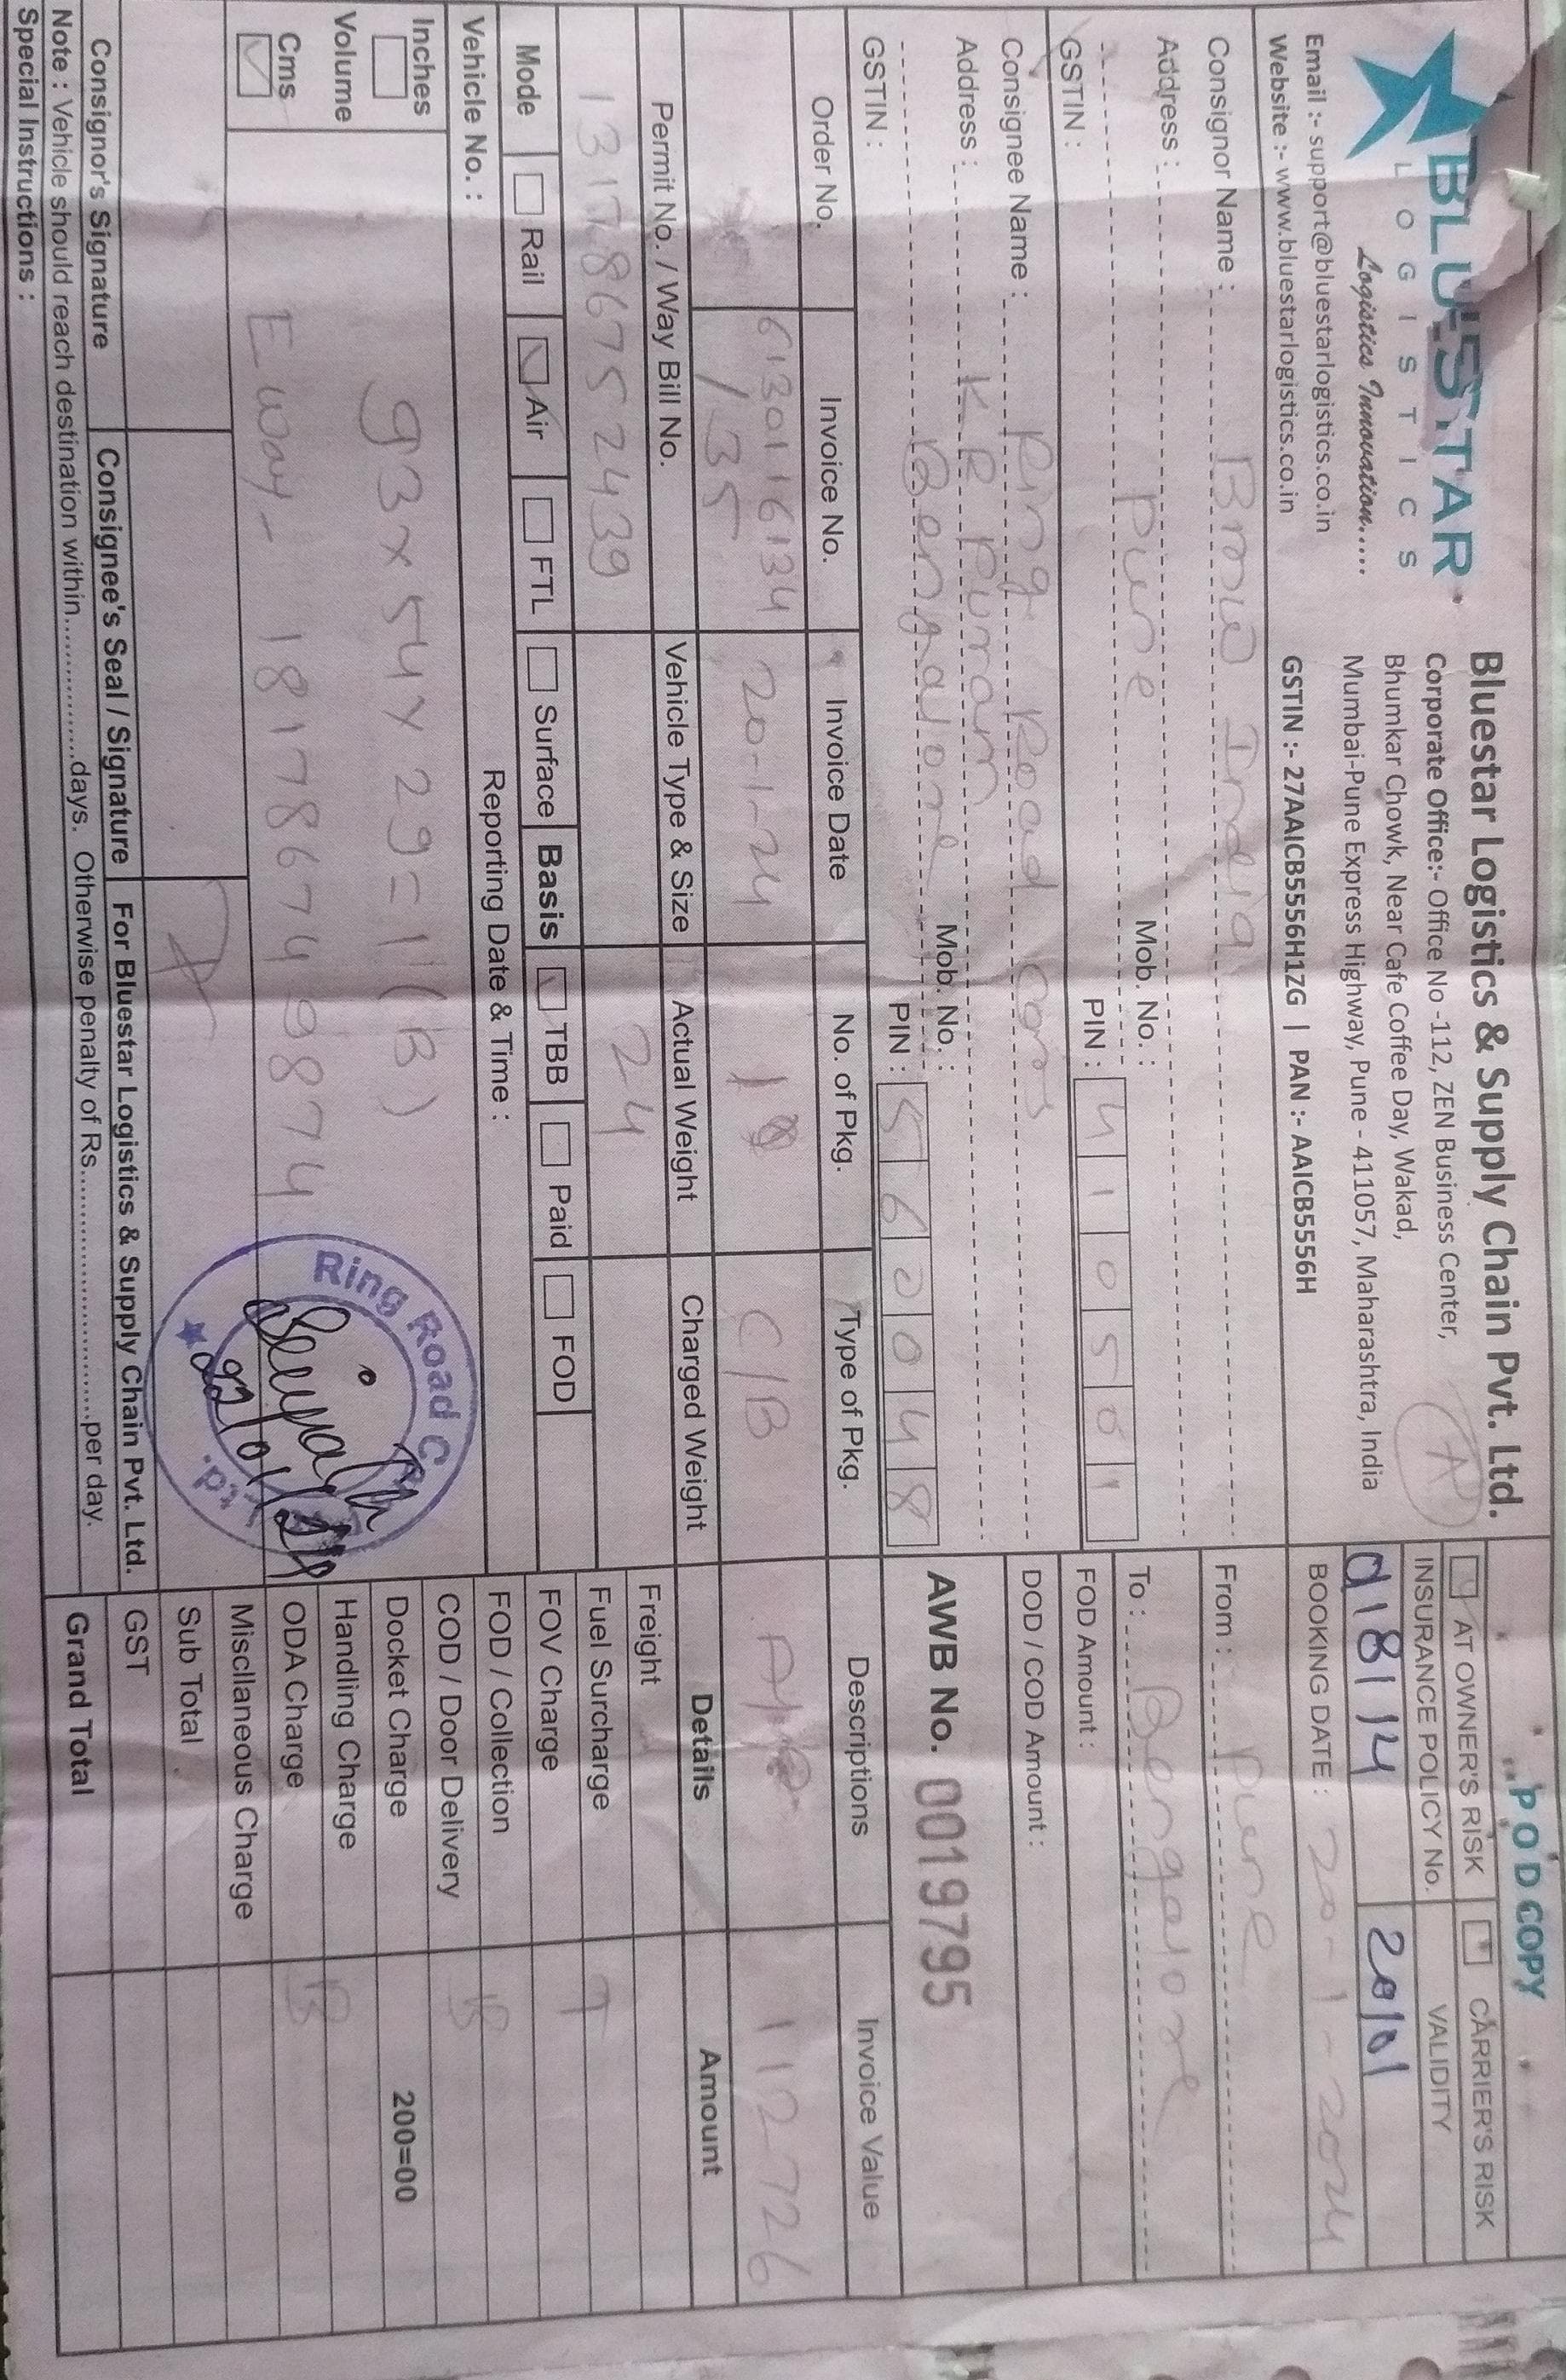 BLUESTAR
LOGISTICS
Logistics Innovation.....
Email :- support@bluestarlogistics.co.in
Website :- www.bluestarlogistics.co.in
Bluestar Logistics & Supply Chain Pvt. Ltd.
Corporate Office:- Office No -112, ZEN Business Center,
Bhumkar Chowk, Near Cafe Coffee Day, Wakad,
Mumbai-Pune Express Highway, Pune - 411057, Maharashtra, India
GSTIN :- 27AAICB5556H1ZG | PAN :- AAICB5556H
A
POD COPY
AT OWNER'S RISK CARRIER'S RISK
INSURANCE POLICY No. VALIDITY
20/01
BOOKING DATE : 20-1-2024
Consignor Name : BMW India
Address :
Pune Mob. No. :
PIN : 410501
GSTIN :
From : Pune
To : Bengalore
FOD Amount :
DOD / COD Amount :
Consignee Name : Ring Road Cars
Address : K R Puram
Bengalore Mob. No. :
PIN : 560048
GSTIN :
AWB No. 0019795
Order No. Invoice No. Invoice Date No. of Pkg. Type of Pkg. Descriptions Invoice Value
6130116134 20-1-24 1 C/B 112726
/ 35
Permit No. / Way Bill No. Vehicle Type & Size Actual Weight Charged Weight Details Amount
131786752439 24
Freight
Fuel Surcharge T
FOV Charge
FOD / Collection B
COD / Door Delivery
Docket Charge 200=00
Handling Charge
ODA Charge B
Miscllaneous Charge
Sub Total
GST
Grand Total
Mode Rail Air FTL Surface Basis TBB Paid FOD
Vehicle No. : Reporting Date & Time :
Inches
Volume
Cms
93x54x29=1(B)
E Way - 181786749874
Ring Road Ltd.
22/01/24
Consignor's Signature Consignee's Seal / Signature For Bluestar Logistics & Supply Chain Pvt. Ltd.
Note : Vehicle should reach destination within.................days. Otherwise penalty of Rs..............................per day.
Special Instructions :